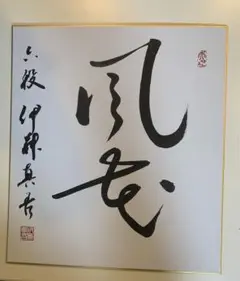 風花
六段 伊藤真吾